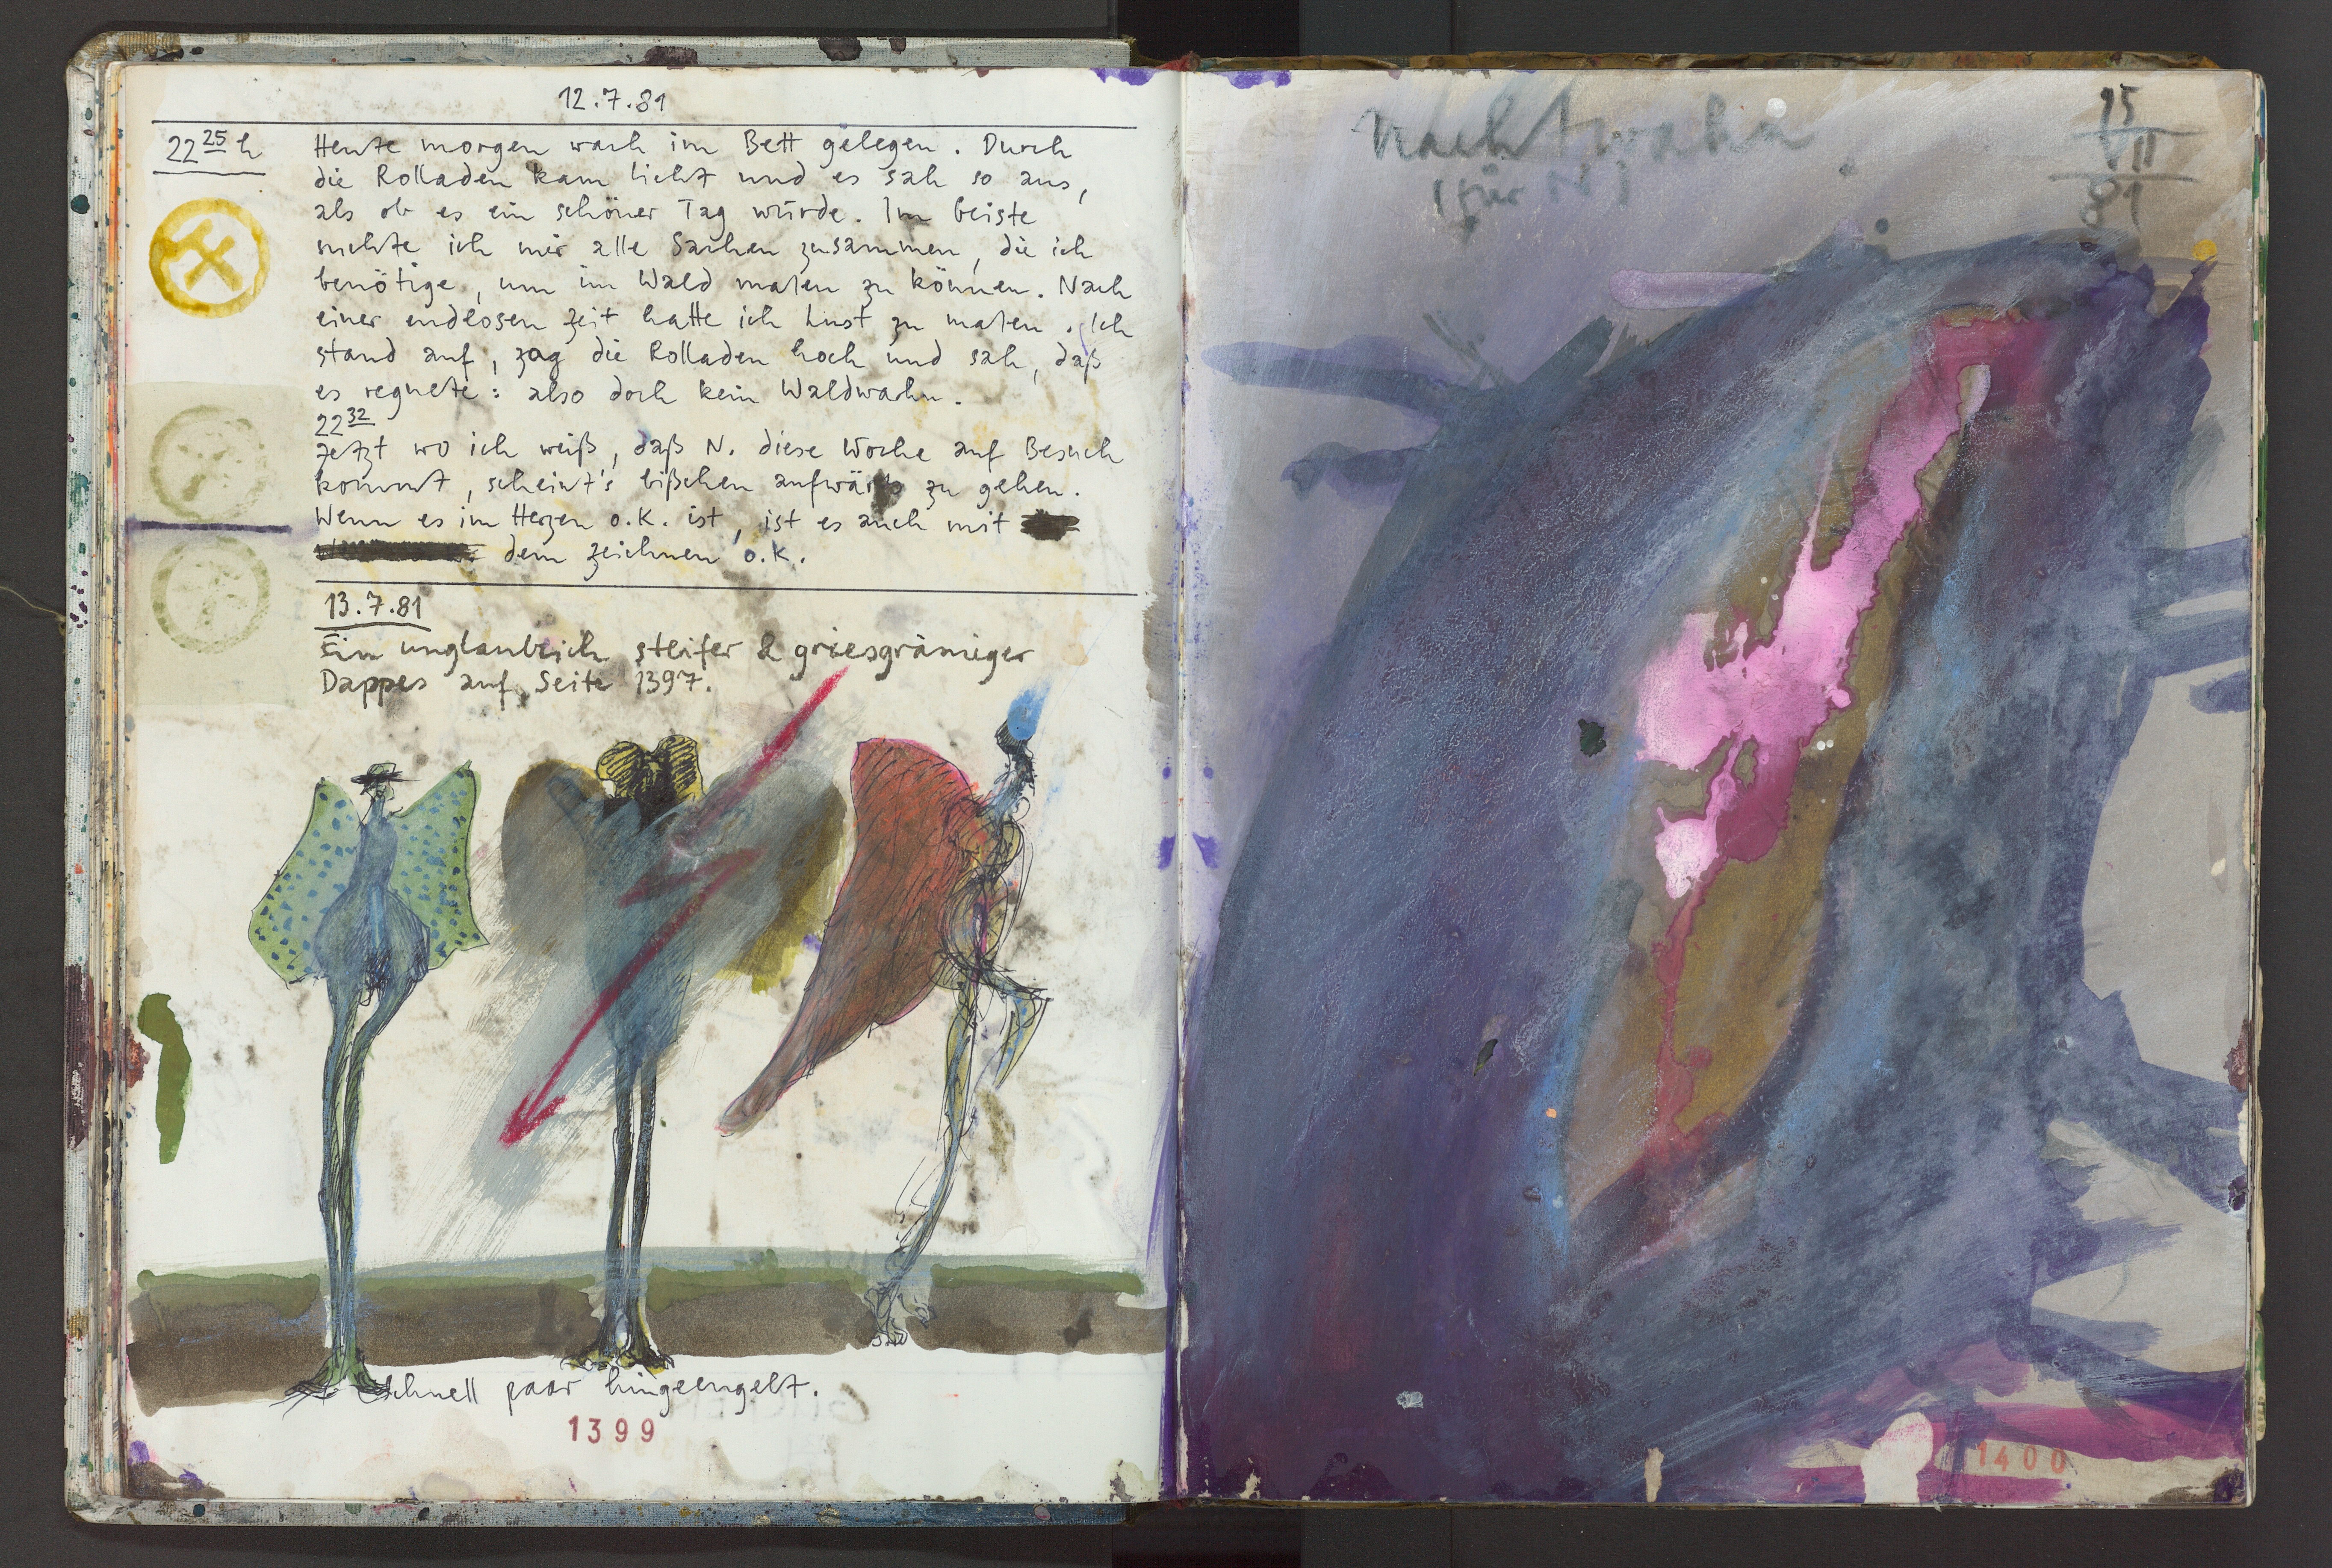 12.7.81
22 25 h
Heute morgen wach im Bett gelegen. Durch
die Rolladen kam Licht und es sah so aus,
als ob es ein schöner Tag würde. Im Geiste
suchte ich mir alle Sachen zusammen, die ich
benötige, um im Wald malen zu können. Nach
einer endlosen Zeit hatte ich Lust zu malen. Ich
stand auf, zog die Rolladen hoch und sah, daß
es regnete: also doch kein Waldwahn.
22 32
Jetzt wo ich weiß, daß N. diese Woche auf Besuch
kommt, scheint's bißchen aufwärts zu gehen.
Wenn es im Herzen o.K. ist, ist es auch mit
dem zeichnen o.K.
13.7.81
Ein unglaublich steifer & griesgrämiger
Dappes auf Seite 1397.
Schnell paar hingeengelt.
1399
Nachtwahn
(für N)
15
VII
81
1400